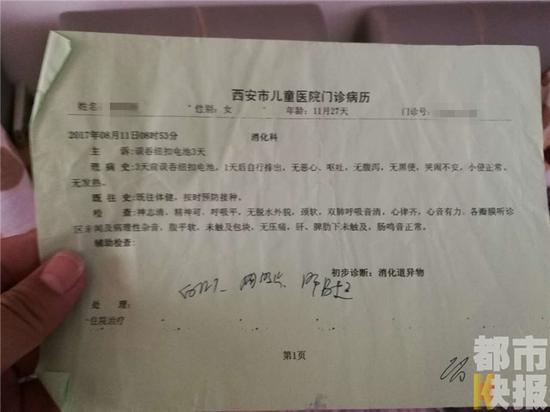 西安市儿童医院门诊病历
姓名: 性别: 女 年龄: 11月27天 门诊号:
2017年08月11日08时53分 消化科
主 诉: 误吞纽扣电池3天
现 病 史: 3天前误吞纽扣电池, 1天后自行排出, 无恶心、呕吐, 无腹泻, 无黑便, 哭闹不安, 小便正常,
无发热。
既 往 史: 既往体健, 按时预防接种。
检 查: 神志清, 精神可, 呼吸平, 无脱水外貌, 颈软, 双肺呼吸音清, 心律齐, 心音有力, 各瓣膜听诊
区未闻及病理性杂音, 腹平软, 未触及包块, 无压痛, 肝、脾肋下未触及, 肠鸣音正常。
辅助检查:
初步诊断: 消化道异物
处 理:
住院治疗
第1页
都市
快报